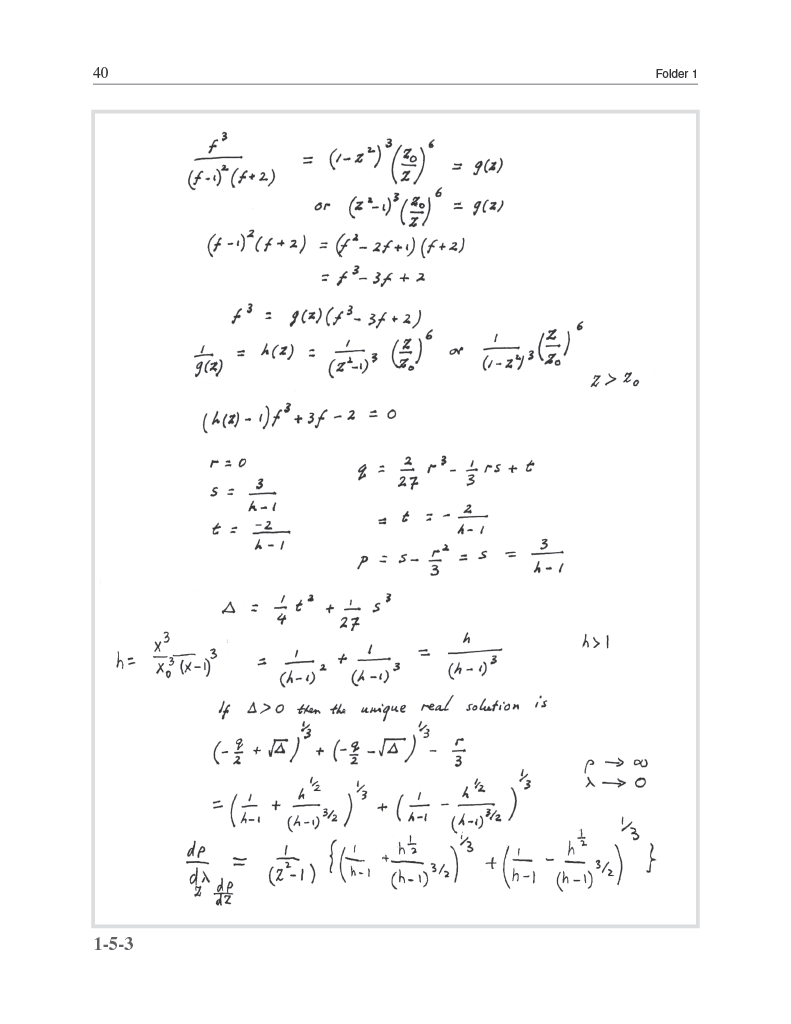 40 Folder 1
f³/((f-1)²(f+2)) = (1-z²)³(z₀/z)⁶ = g(z)
or (z²-1)³(z₀/z)⁶ = g(z)
(f-1)²(f+2) = (f²-2f+1)(f+2)
= f³-3f+2
f³ = g(z)(f³-3f+2)
1/g(z) = h(z) = 1/(z²-1)³ (z/z₀)⁶ or 1/(1-z²)³ (z/z₀)⁶
z > z₀
(h(z)-1)f³+3f-2 = 0
r = 0 q = 2/27 r³ - 1/3 rs + t
s = 3/(h-1)
= t = -2/(h-1)
t = -2/(h-1)
p = s - r²/3 = s = 3/(h-1)
Δ = 1/4 t² + 1/27 s³
h = x³/(x₀³(x-1)³) = 1/(h-1)² + 1/(h-1)³ = h/(h-1)³ h>1
If Δ>0 then the unique real solution is
(-q/2 + √Δ)^1/3 + (-q/2 - √Δ)^1/3 - r/3
ρ → ∞
λ → 0
= (1/(h-1) + h^1/2/(h-1)^3/2)^1/3 + (1/(h-1) - h^1/2/(h-1)^3/2)^1/3
dρ/dλ = 1/(z²-1) {(1/(h-1) + h^1/2/(h-1)^3/2)^1/3 + (1/(h-1) - h^1/2/(h-1)^3/2)^1/3}
z dρ/dz
1-5-3